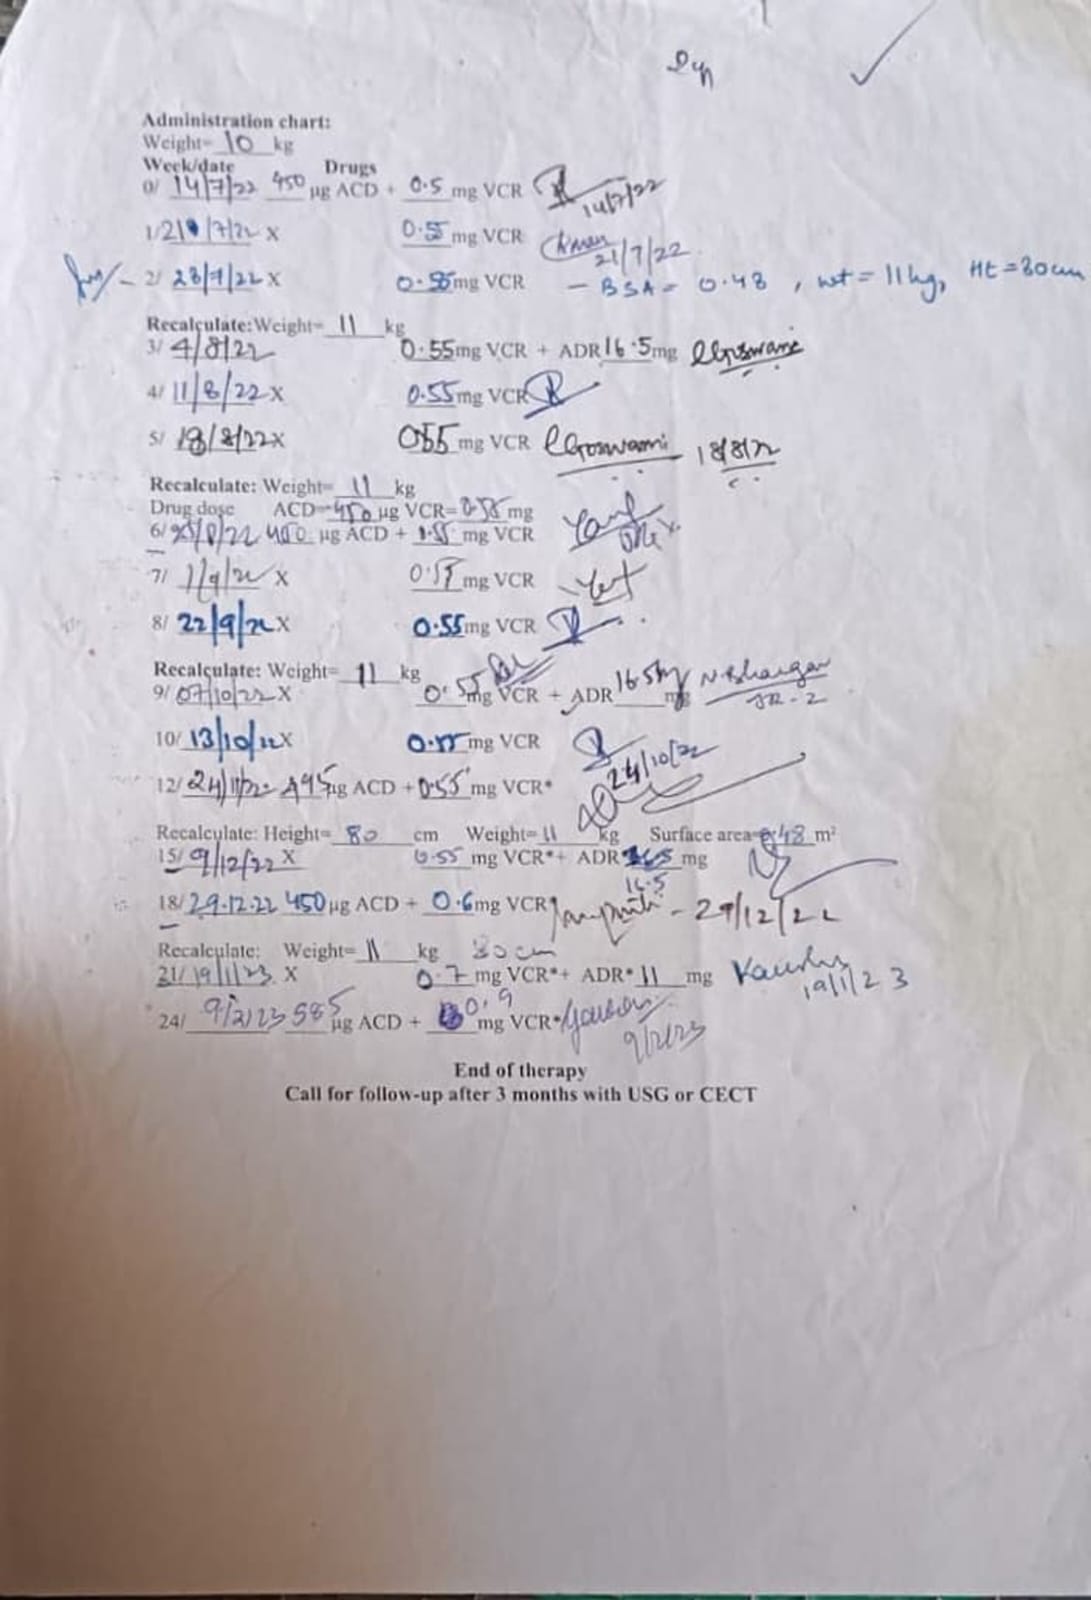 Administration chart:
Weight= 10 kg
Week/date Drugs
0/ 14/7/22 450 µg ACD + 0.5 mg VCR 14/7/22
1/ 21/7/22 X 0.55 mg VCR 21/7/22
2/ 28/7/22 X 0.55 mg VCR - BSA = 0.48 , wt = 11 kg, Ht = 80 cm
Recalculate: Weight= 11 kg
3/ 4/8/22 0.55 mg VCR + ADR 16.5 mg Goswami
4/ 11/8/22 X 0.55 mg VCR
5/ 18/8/22 X 0.55 mg VCR Goswami 18/8/22
Recalculate: Weight= 11 kg
Drug dose ACD= 450 µg VCR= 0.55 mg
6/ 25/8/22 450 µg ACD + mg VCR
7/ X 0.55 mg VCR
8/ 22/9/22 X 0.55 mg VCR
Recalculate: Weight= 11 kg
9/ 07/10/22 X 0.55 mg VCR + ADR 16.5 mg N. Bhargav
JR-2
10/ 13/10/22 X 0.55 mg VCR
24/10/22
12/ 495 µg ACD + 0.55 mg VCR*
Recalculate: Height= 80 cm Weight= 11 kg Surface area= 0.48 m²
15/ 9/12/22 X 0.55 mg VCR*+ ADR mg
16.5
18/ 29.12.22 450 µg ACD + 0.6 mg VCR - 29/12/22
Recalculate: Weight= 11 kg 80 cm
21/ 19/1/23 X 0.7 mg VCR*+ ADR* 11 mg 19/1/23
24/ 9/2/23 585 µg ACD + 0.9 mg VCR*
9/2/23
End of therapy
Call for follow-up after 3 months with USG or CECT